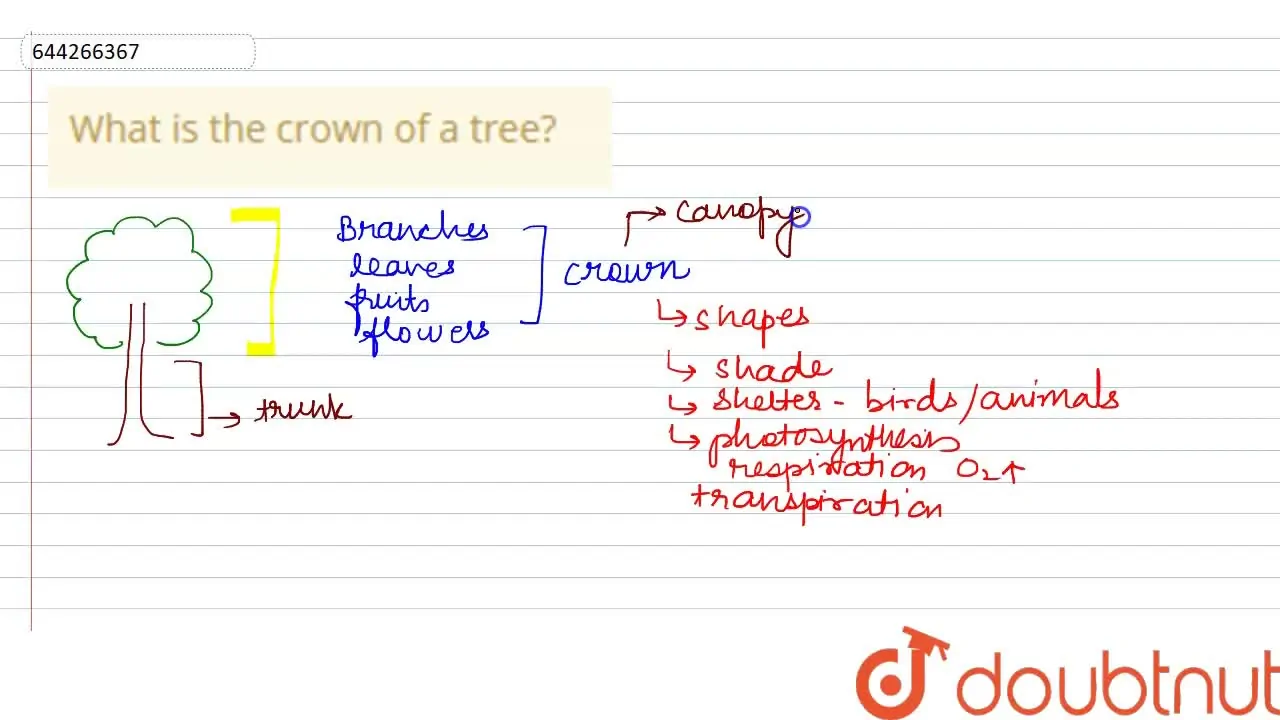 644266367
What is the crown of a tree?
canopy
Branches
leaves
fruits
flowers
crown
shapes
shade
trunk
shelter - birds/animals
photosynthesis
respiration O₂↑
transpiration
doubtnut